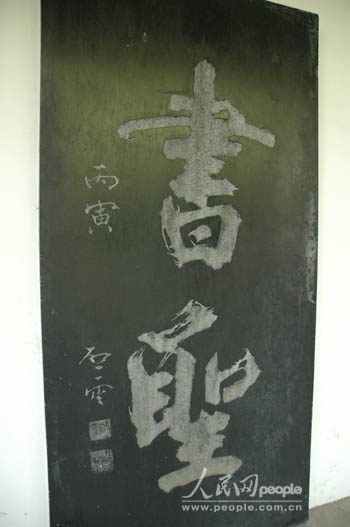 書聖
丙寅
石雲
人民网people
www.people.com.cn